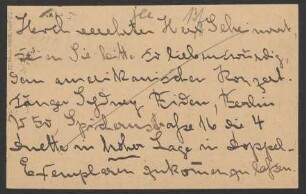 Hoch verehrter Herr Geheimrat,
seien Sie bitte so liebenswürdig,
dem amerikanischen Konzert-
sänger Sydney Biden, Berlin
W 50 Spichernstraße 16 die 4
Duette in hoher Lage in doppel-
Exemplaren zukommen zu lassen.